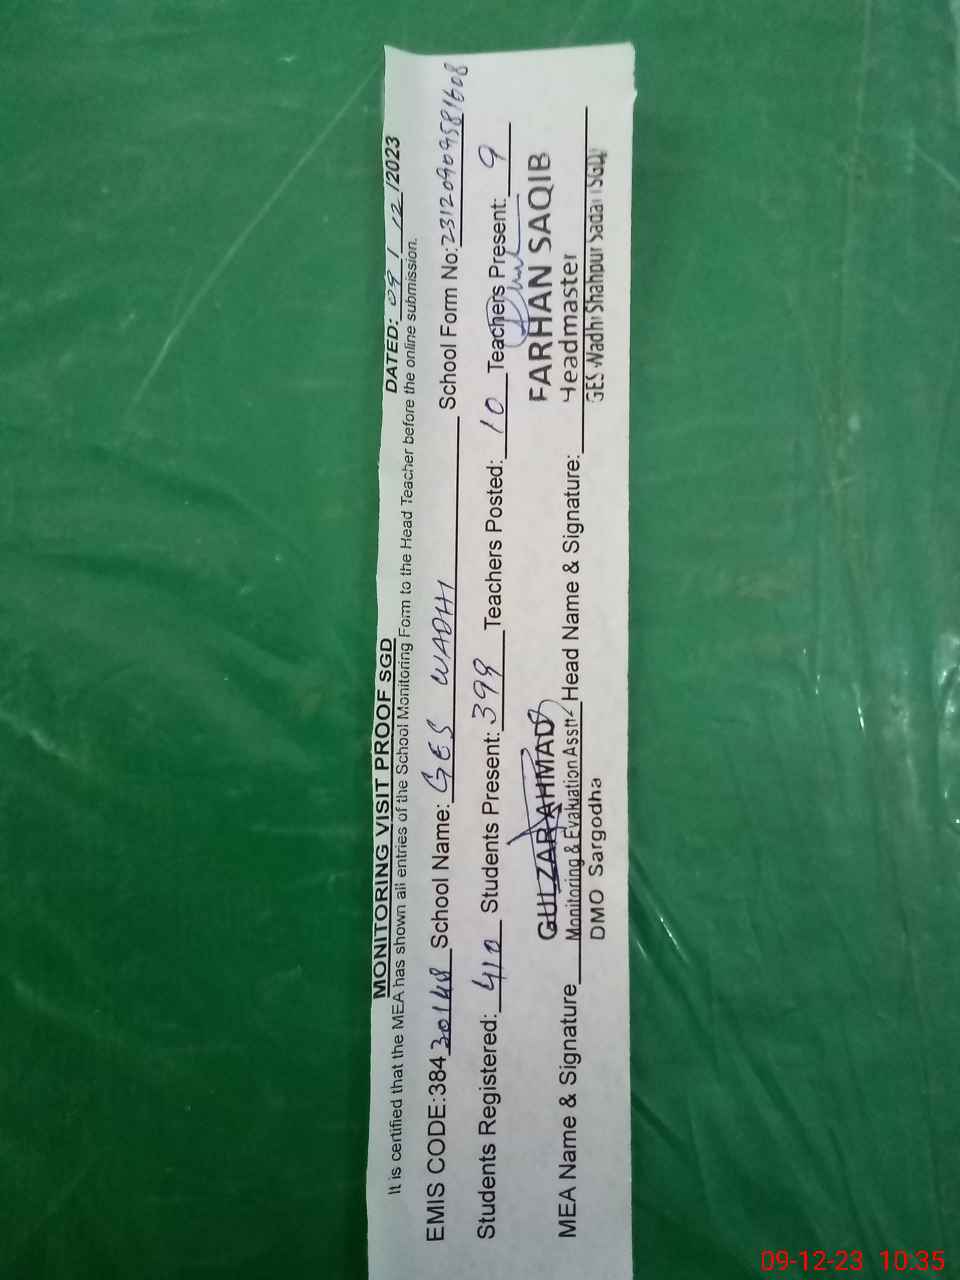 MONITORING VISIT PROOF SGD DATED: 09 / 12 /2023
It is certified that the MEA has shown all entries of the School Monitoring Form to the Head Teacher before the online submission.
EMIS CODE:384 30148 School Name: GES WADHI School Form No: 23120909581608
Students Registered: 410 Students Present: 399 Teachers Posted: 10 Teachers Present: 9
GULZAR AHMAD FARHAN SAQIB
Monitoring & Evaluation Asstt: Headmaster
MEA Name & Signature Head Name & Signature:
DMO Sargodha GES Wadhi Shahpur Sadar (SGD)
09-12-23 10:35